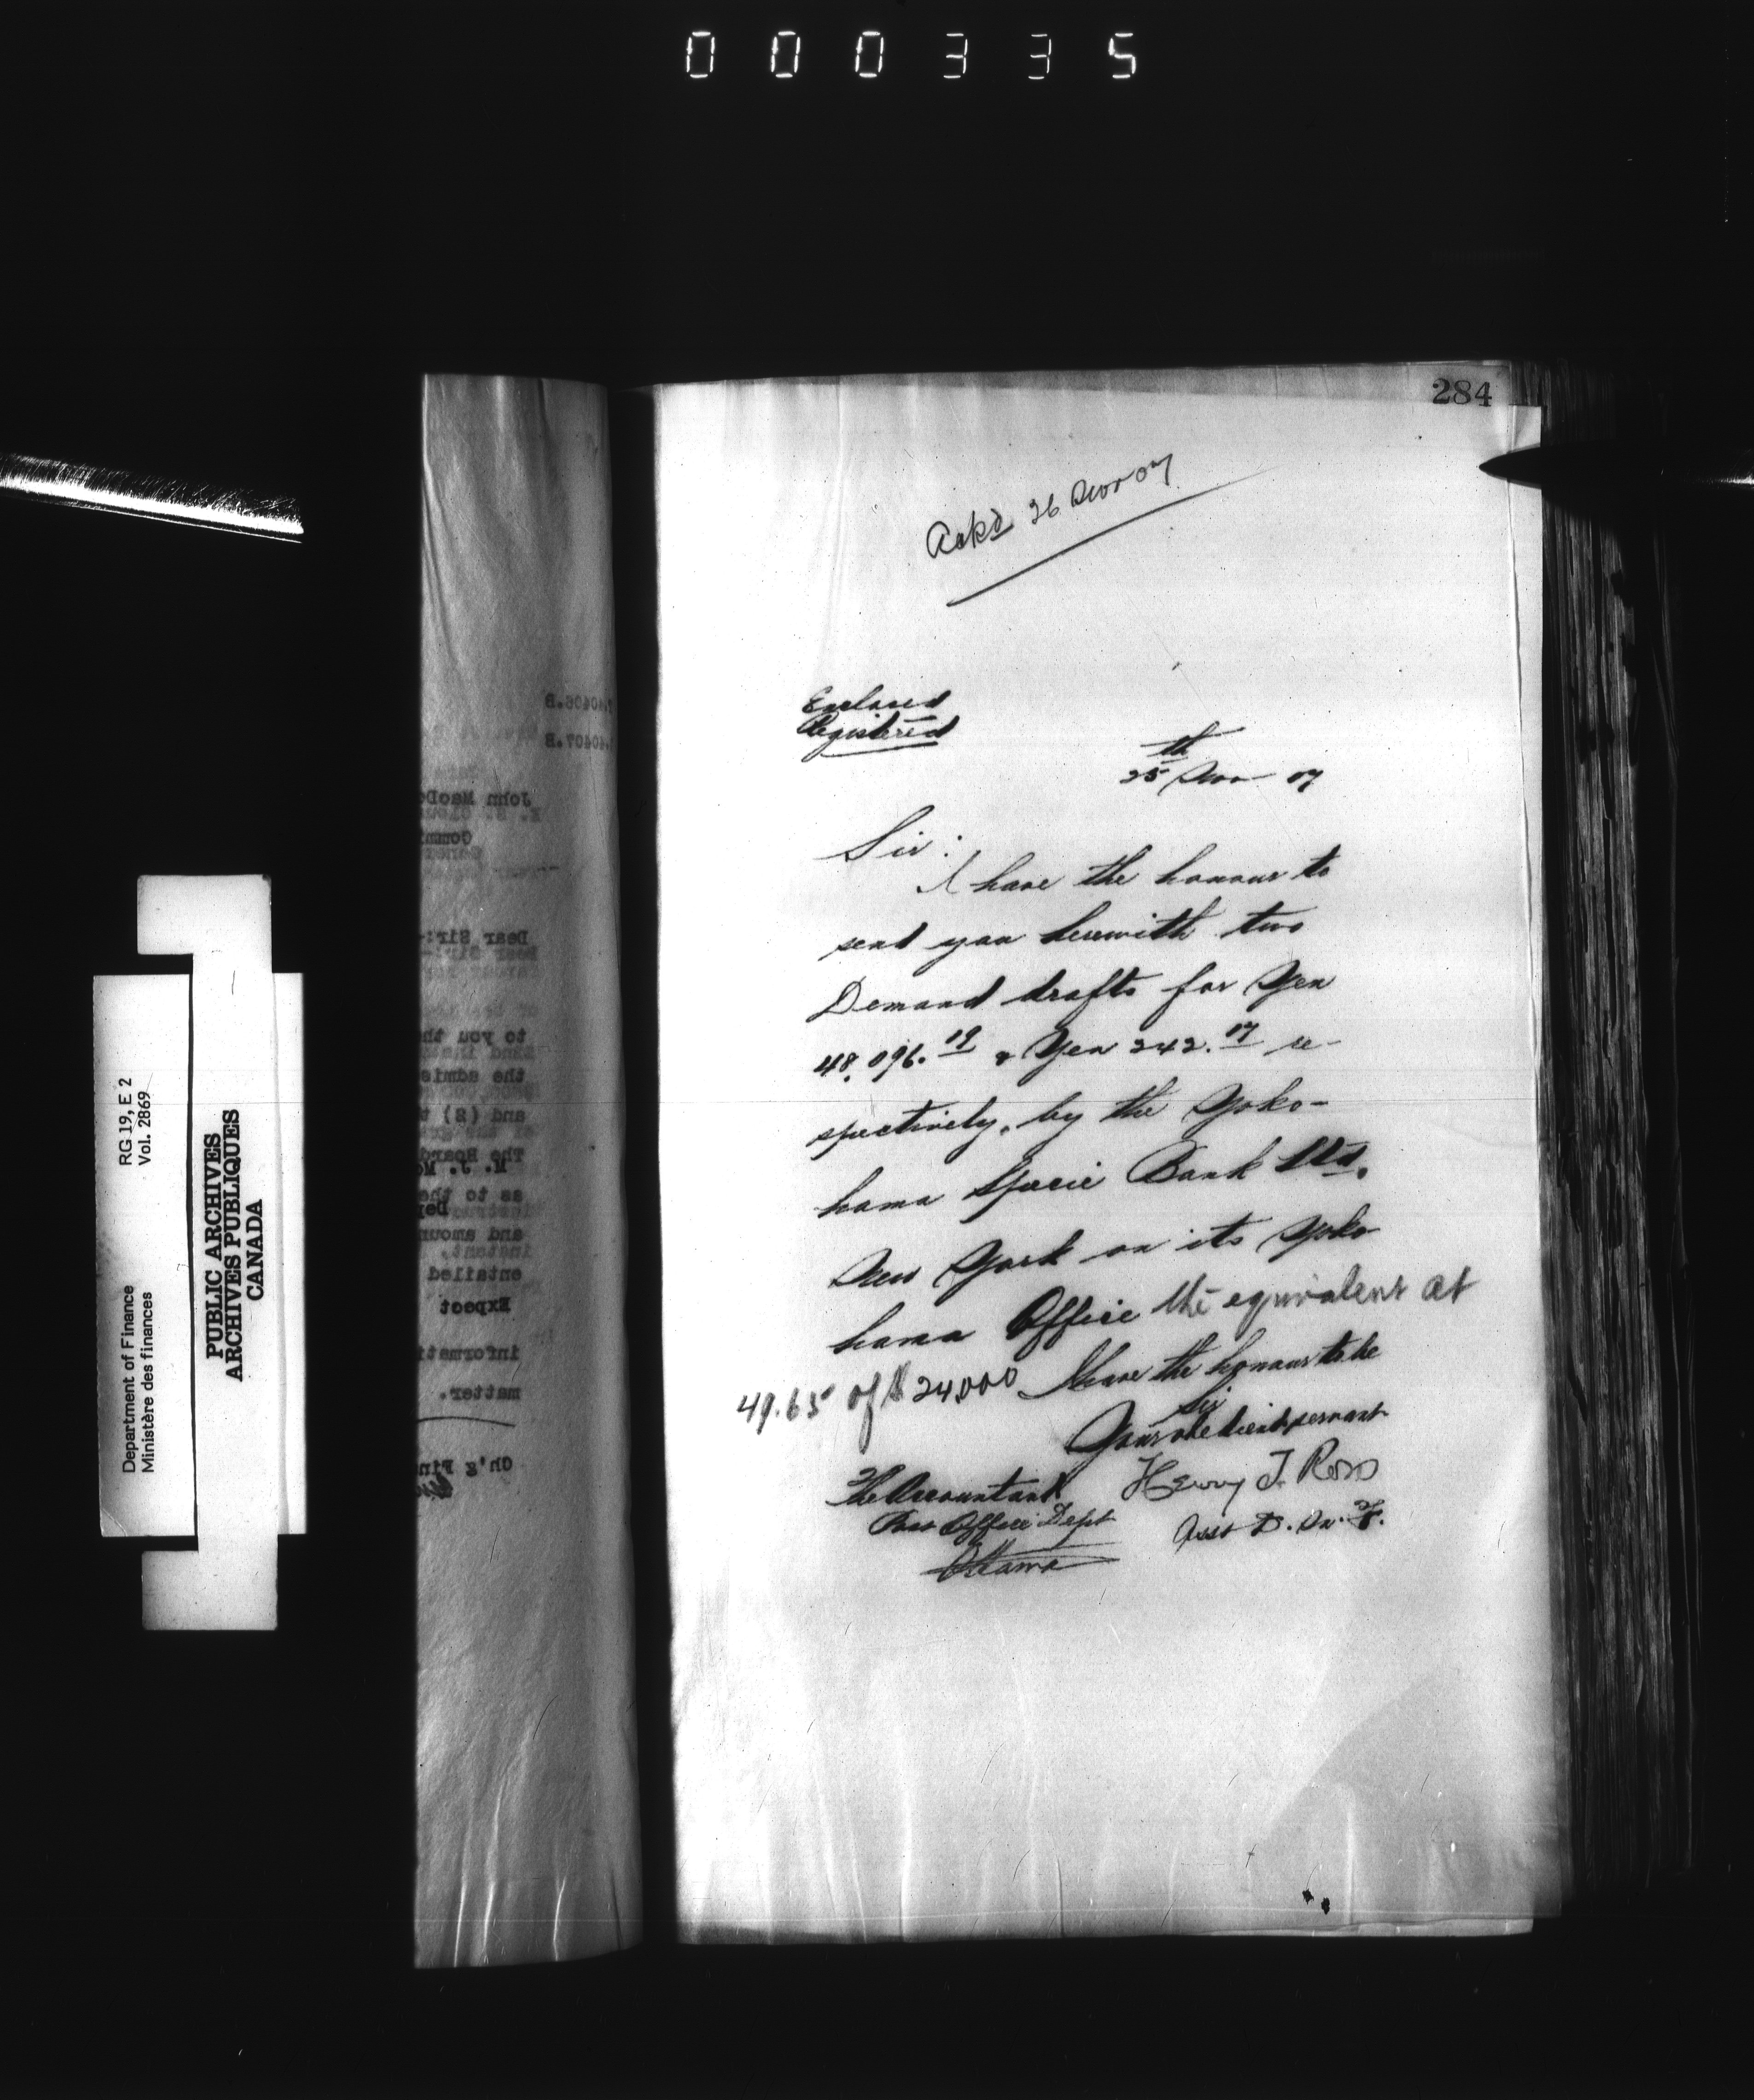 000335
284
Ackd 26 Nov 07
Enclosed
Registered
25th Nov 07
Sir:
I have the honour to
send you herewith two
Demand drafts for Yen
48,096.19 & Yen 242.17 re-
spectively, by the Yoko-
hama Specie Bank Ltd.
New York on its Yoko-
hama Office the equivalent at
49.65 of $24,000 I have the honour to be
Sir
Your obedient servant
Henry T. Ross
Asst D. M. F.
The Accountant
Post Office Dept
Ottawa
RG 19, E 2
Vol. 2869
Department of Finance
Ministère des finances
PUBLIC ARCHIVES
ARCHIVES PUBLIQUES
CANADA
40406.B
40407.B
John MacDo
Dear Sir:-
to you th
the admis
and (2) t
The Board
as to the
and amoun
entailed
Expect
informati
matter.
Ch'g Fin